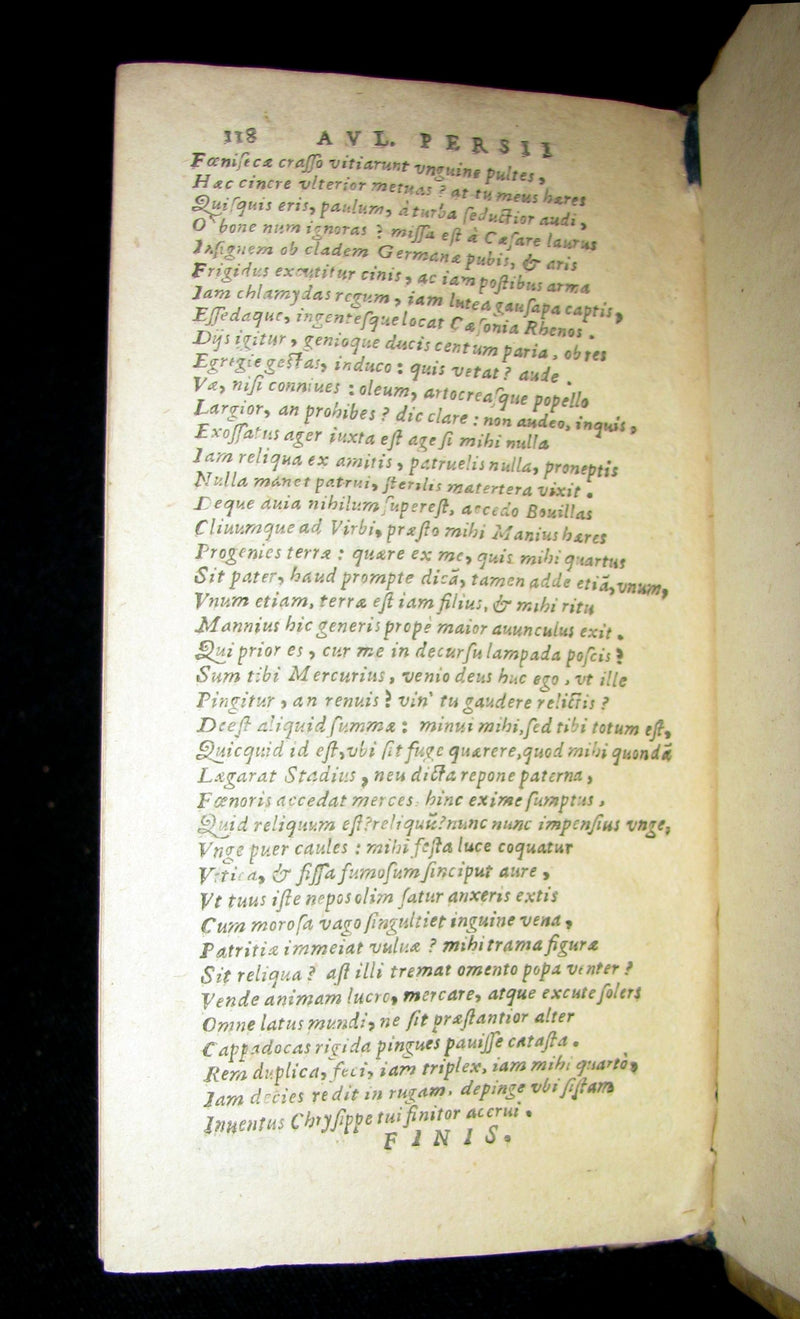 118 AVL. PERSII
Fœniſecæ craſſo vitiarunt vnguine pultes,
Hæc cinere vlterior metuas? at tu meus hæres
Quiſquis eris, paulum, à turba ſeductior audi,
O bone num ignoras? miſſa eſt à Cæſare laurus
Inſignem ob cladem Germanæ pubis, & aris
Frigidus excutitur cinis, ac iam poſtibus arma
Iam chlamydas regum, iam lutea gauſapa captis,
Eſſedaque, ingenteſque locat Cæſonia Rhenos.
Dijs igitur, genioque ducis centum paria, ob res
Egregie geſtas, induco: quis vetat? aude.
Væ, niſi conniues: oleum, artocreaſque popello
Largior, an prohibes? dic clare: non audeo, inquis,
Exoſſatus ager iuxta eſt age ſi mihi nulla
Iam reliqua ex amitis, patruelis nulla, proneptis
Nulla manet patrui, ſterilis matertera vixit.
Deque auia nihilum ſupereſt, accedo Bouillas
Cliuumque ad Virbi, præſto mihi Manius hæres
Progenies terræ: quære ex me, quis mihi quartus
Sit pater, haud prompte dicã, tamen adde etiã, vnum,
Vnum etiam, terræ eſt iam filius, & mihi ritu
Mannius hic generis propè maior auunculus exit.
Qui prior es, cur me in decurſu lampada poſcis?
Sum tibi Mercurius, venio deus huc ego, vt ille
Pingitur, an renuis? vin' tu gaudere relictis?
Deeſt aliquid ſummæ: minui mihi, ſed tibi totum eſt,
Quicquid id eſt, vbi ſit fuge quærere, quod mihi quondã
Lægarat Stadius, neu dicta repone paterna,
Fœnoris accedat merces, hinc exime ſumptus,
Quid reliquum eſt? reliquũ? nunc nunc impenſius vnge,
Vnge puer caules: mihi feſta luce coquatur
Vrtica, & fiſſa fumoſum ſinciput aure,
Vt tuus iſte nepos olim ſatur anxeris extis
Cum moroſa vago ſingultiet inguine vena,
Patritiæ immeiat vuluæ? mihi trama figuræ
Sit reliqua? aſt illi tremat omento popa venter?
Vende animam lucro, mercare, atque excute ſolers
Omne latus mundi, ne ſit præſtantior alter
Cappadocas rigida pingues pauiſſe cataſta.
Rem duplica, feci, iam triplex, iam mihi quarto,
Iam decies redit in rugam, depinge vbi ſiſtam
Inuentus Chryſippe tui finitor acerui.
FINIS.